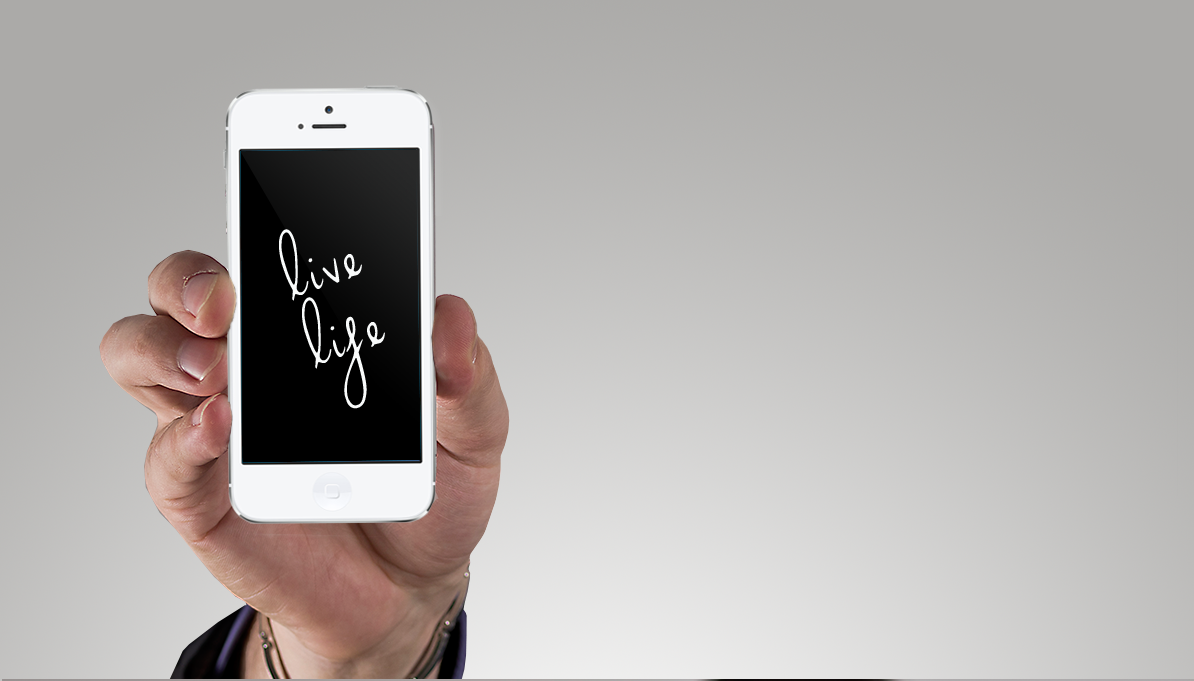 live
life